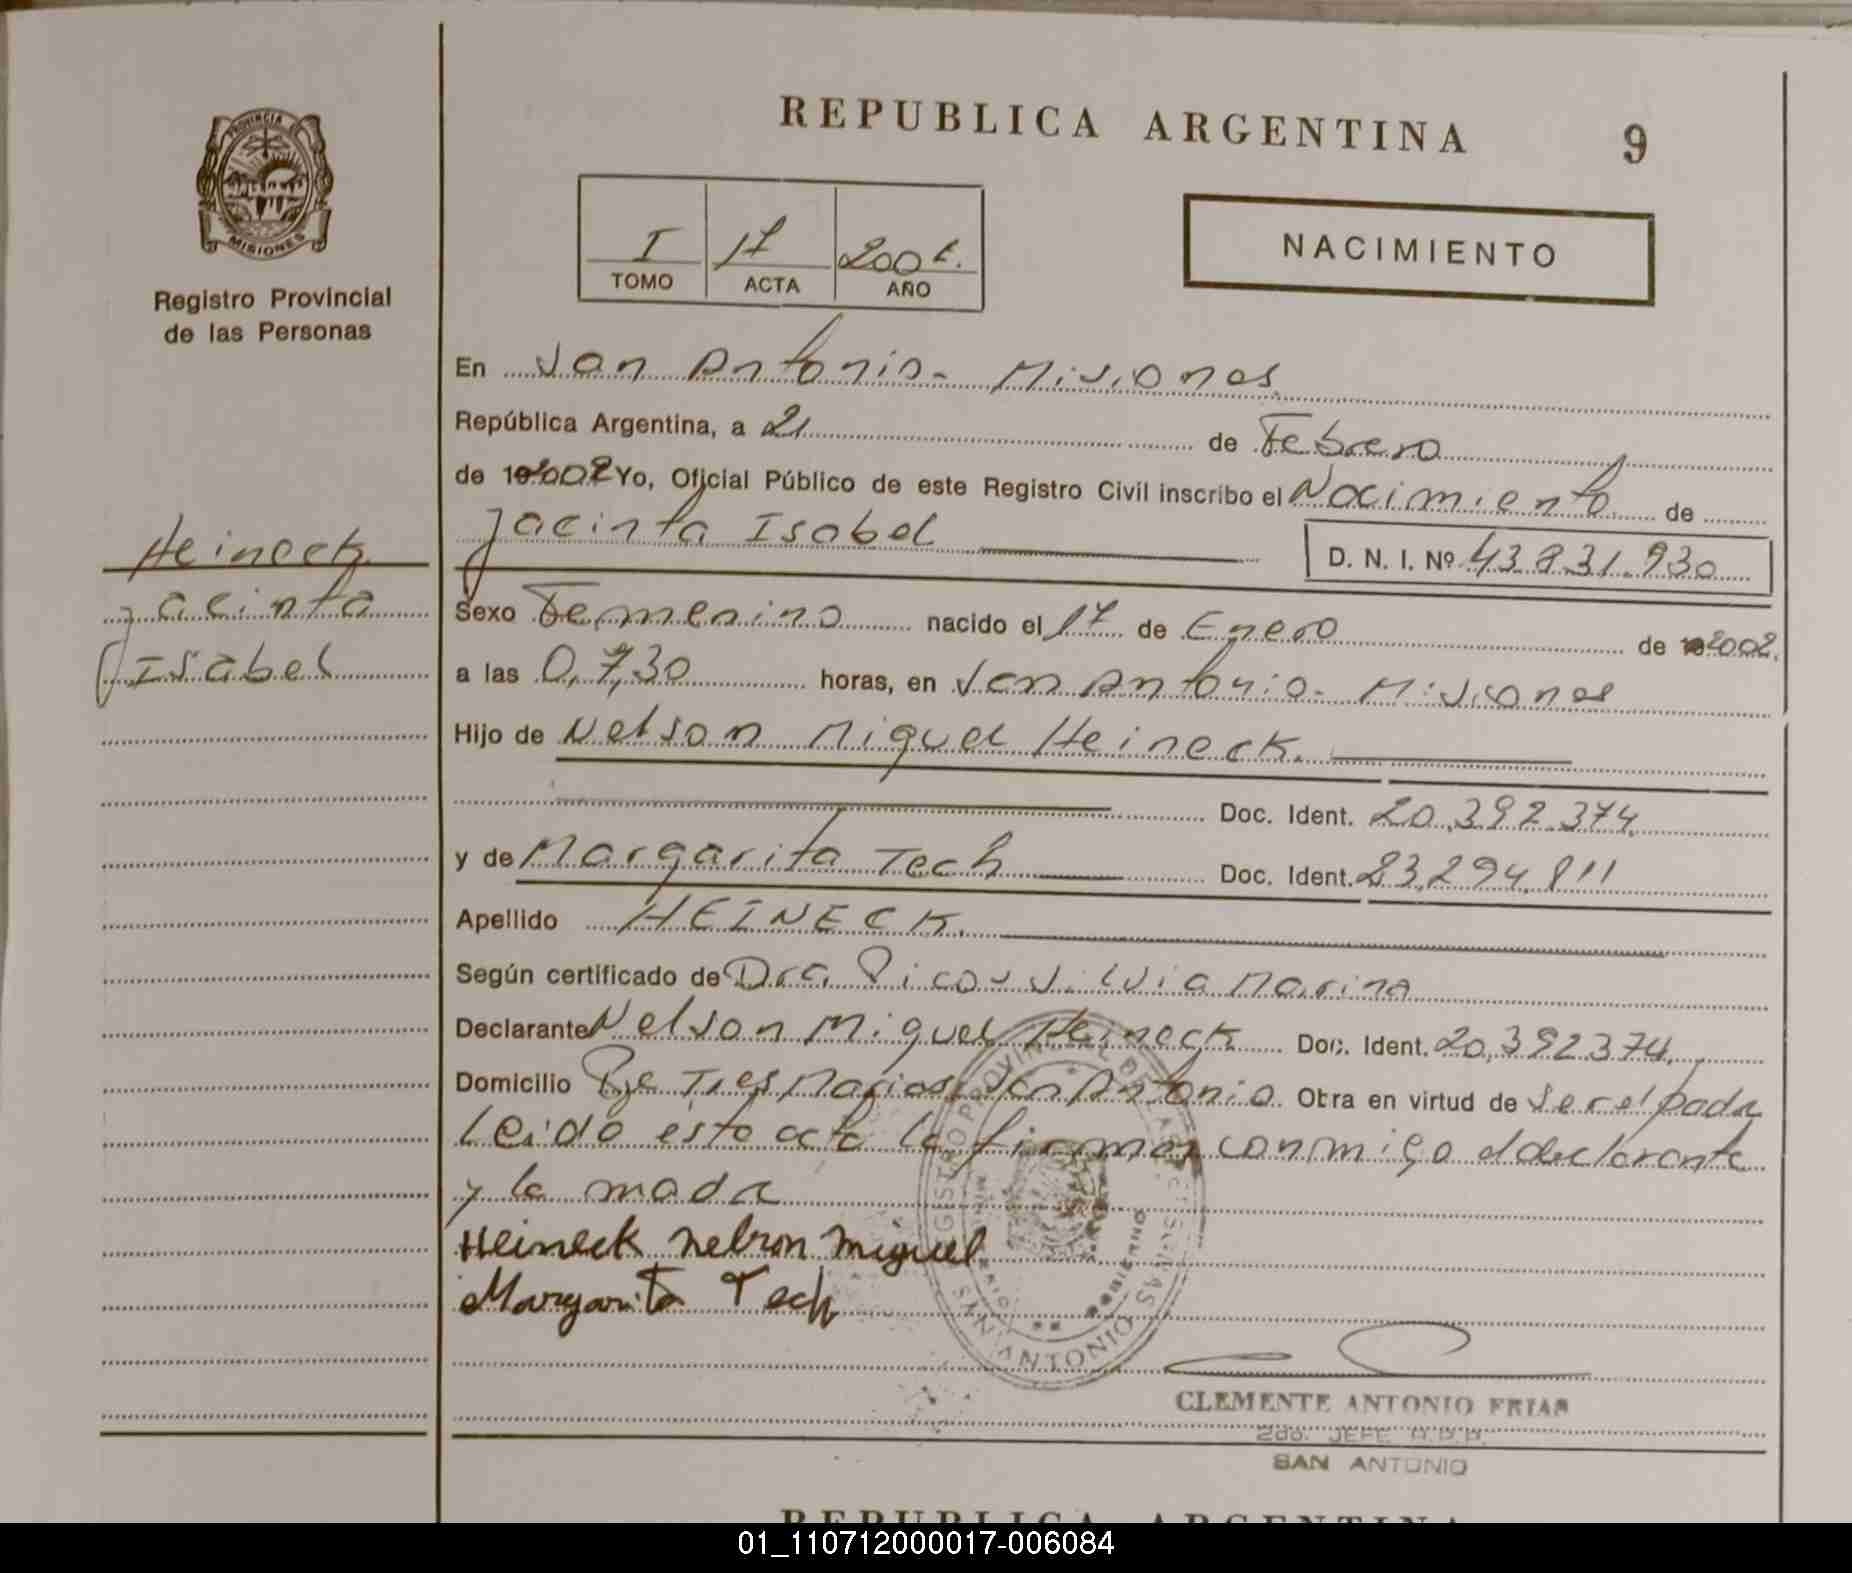 REPUBLICA ARGENTINA
9
PROVINCIA DE
MISIONES
Registro Provincial
de las Personas
I 17 2002.
TOMO ACTA AÑO
NACIMIENTO
En San Antonio - Misiones
República Argentina, a 21 de Febrero
de 2002 Yo, Oficial Público de este Registro Civil inscribo el Nacimiento de
Jacinta Isabel
D. N. I. Nº 43.831.930
Heineck
Jacinta
Isabel
Sexo Femenino nacido el 17 de Enero de 2002.
a las 0,7,30 horas, en San Antonio - Misiones
Hijo de Nelson Miguel Heineck.
Doc. Ident. 20.392.374
y de Margarita Tech Doc. Ident. 23.294.811
Apellido HEINECK.
Según certificado de Dra Picos Silvia Marina
Declarante Nelson Miguel Heineck Doc. Ident. 20.392374.
Domicilio Pje Tres Marias San Antonio. Obra en virtud de ser el padre
Leido esta acta la firman conmigo el declarante
y la madre
Heineck nelson miguel
Margarita Tech
REGISTRO PROVINCIAL DE LAS PERSONAS
SAN ANTONIO
GOBIERNO
CLEMENTE ANTONIO FRIAS
2do. JEFE R.P.P.
SAN ANTONIO
REPUBLICA ARGENTINA
01_110712000017-006084